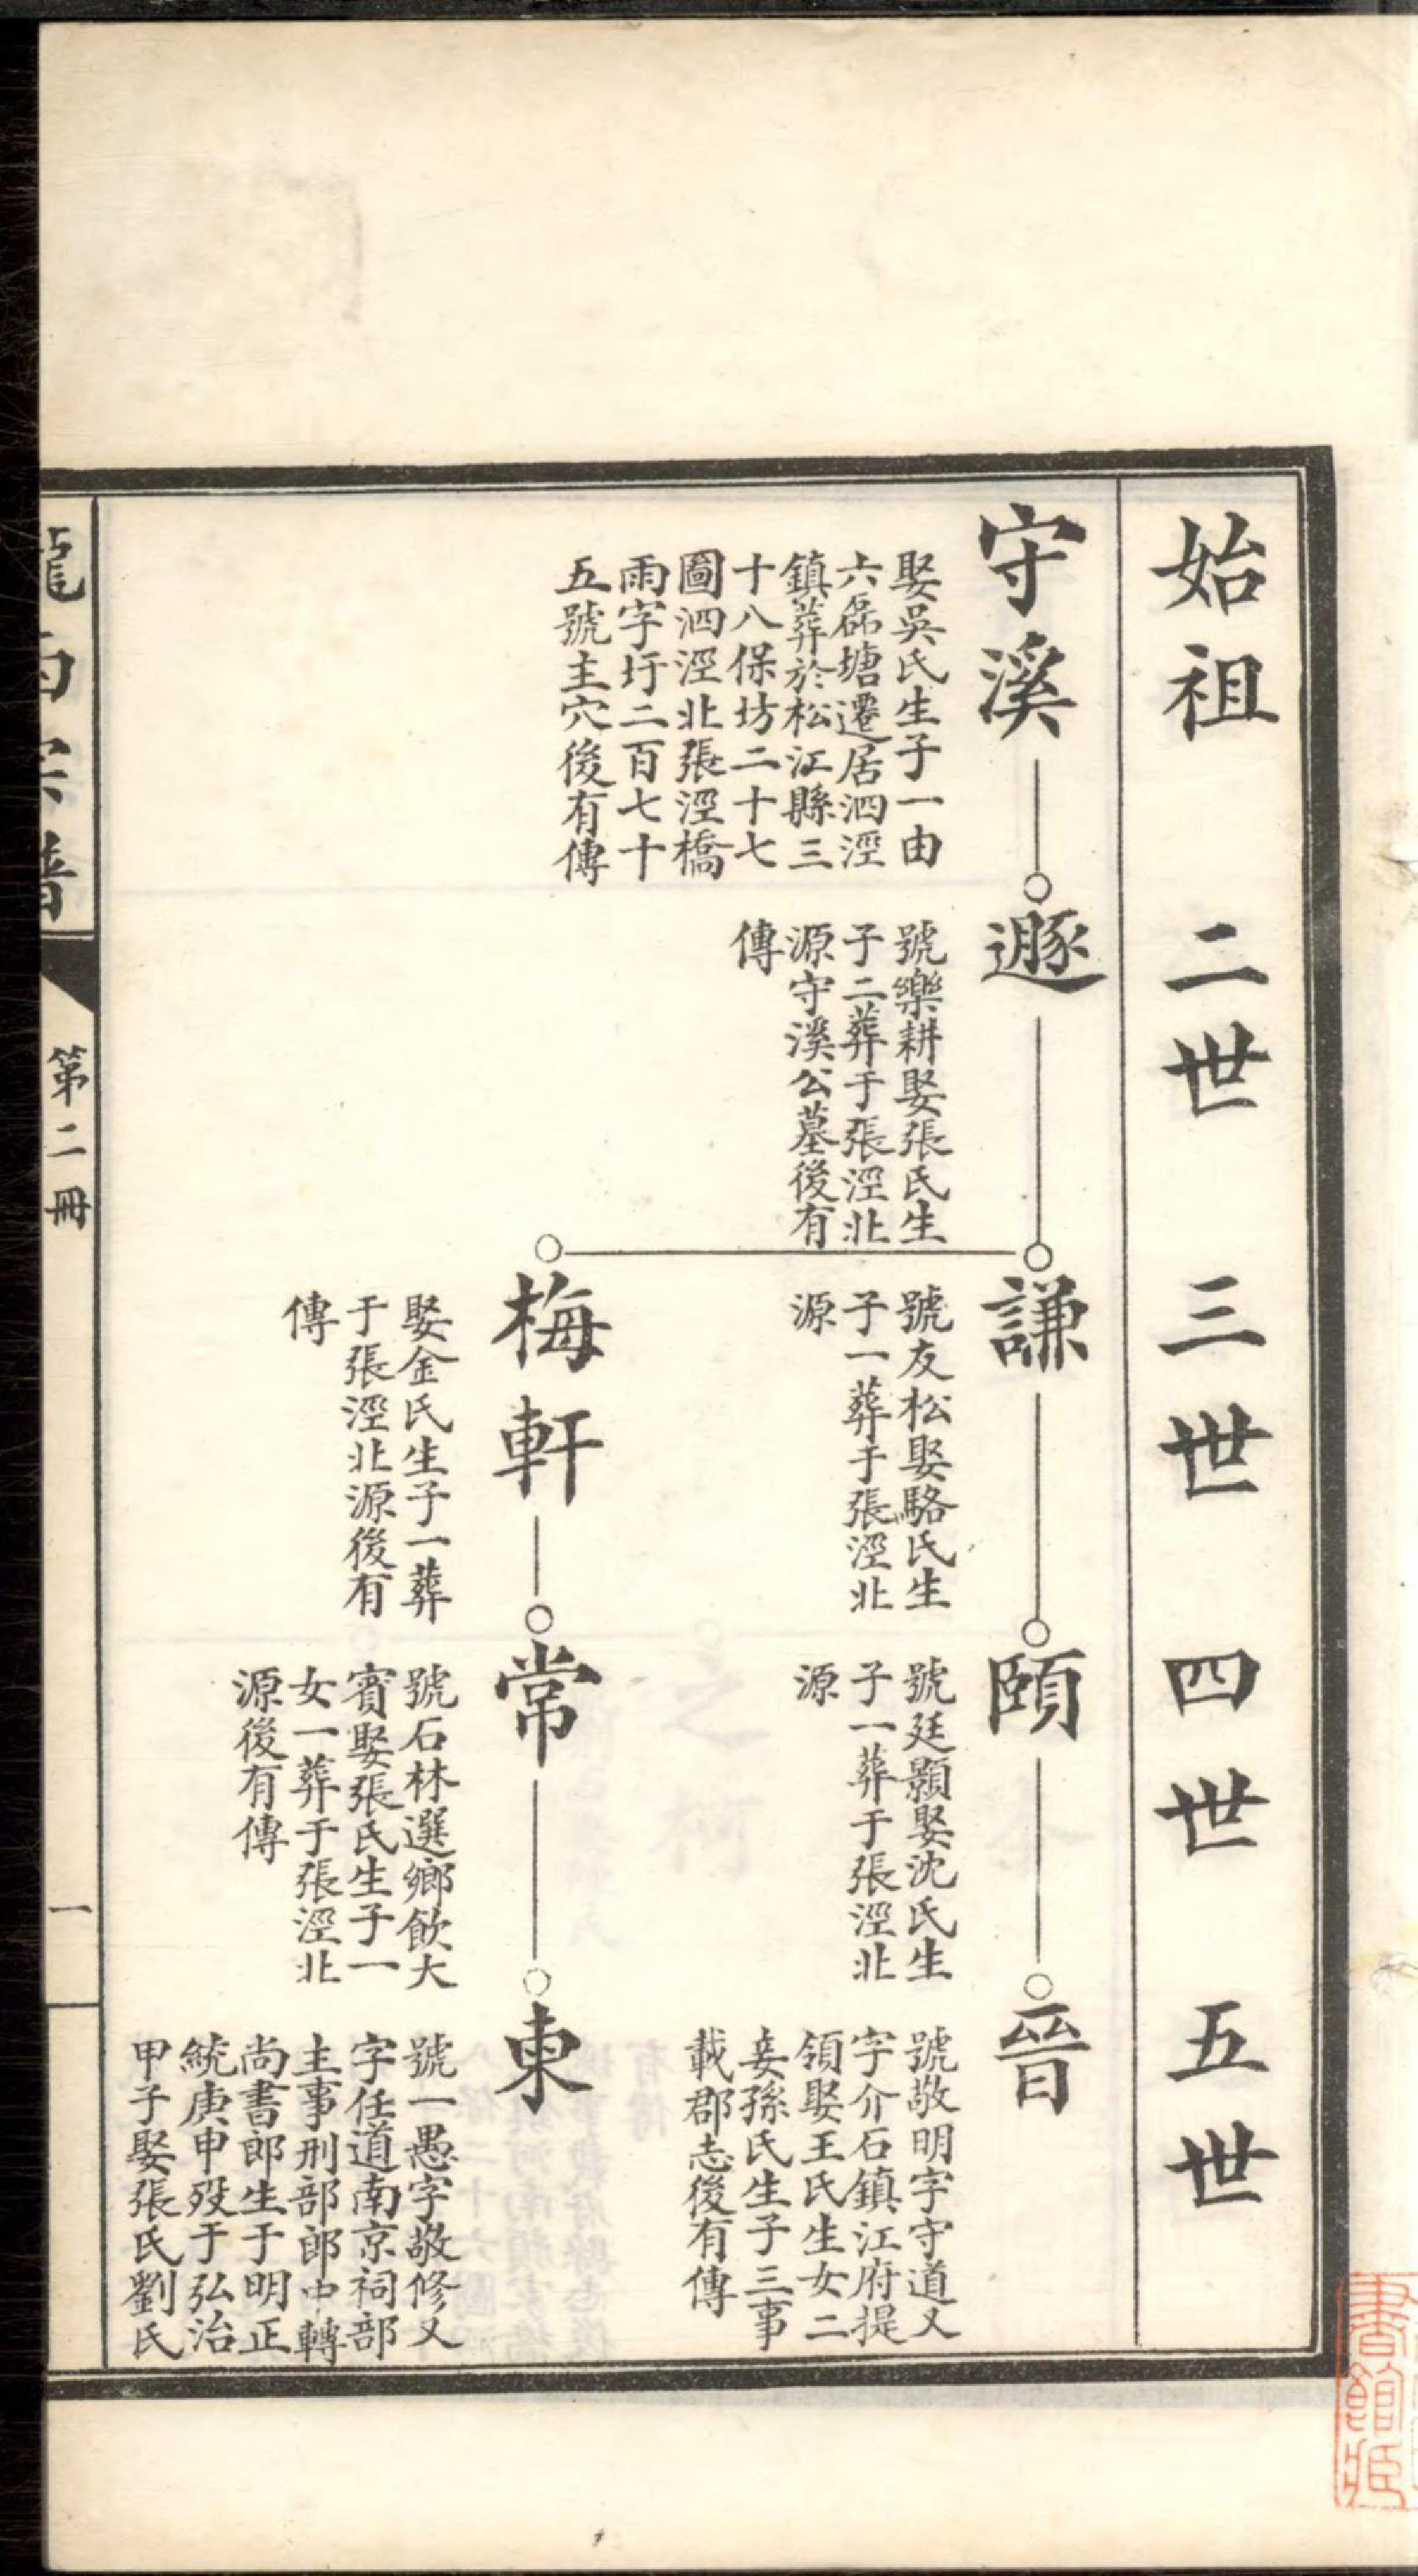 始祖
二世
三世
四世
五世
守溪
娶吳氏生子一由
六磊塘遷居泗涇
鎮葬於松江縣三
十八保坊二十七
圖泗涇北張涇橋
雨字圩二百七十
五號主穴後有傳
遯
號樂耕娶張氏生
子二葬于張涇北
源守溪公墓後有
傳
謙
號友松娶駱氏生
子一葬于張涇北
源
頤
號廷顥娶沈氏生
子一葬于張涇北
源
晉
號敬明字守道又
字介石鎮江府提
領娶王氏生女二
妾孫氏生子三事
載郡志後有傳
梅軒
娶金氏生子一葬
于張涇北源後有
傳
常
號石林選鄉飲大
賓娶張氏生子一
女一葬于張涇北
源後有傳
東
號一愚字敬修又
字任道南京祠部
主事刑部郎中轉
尚書郎生于明正
統庚申歿于弘治
甲子娶張氏劉氏
第二冊
一